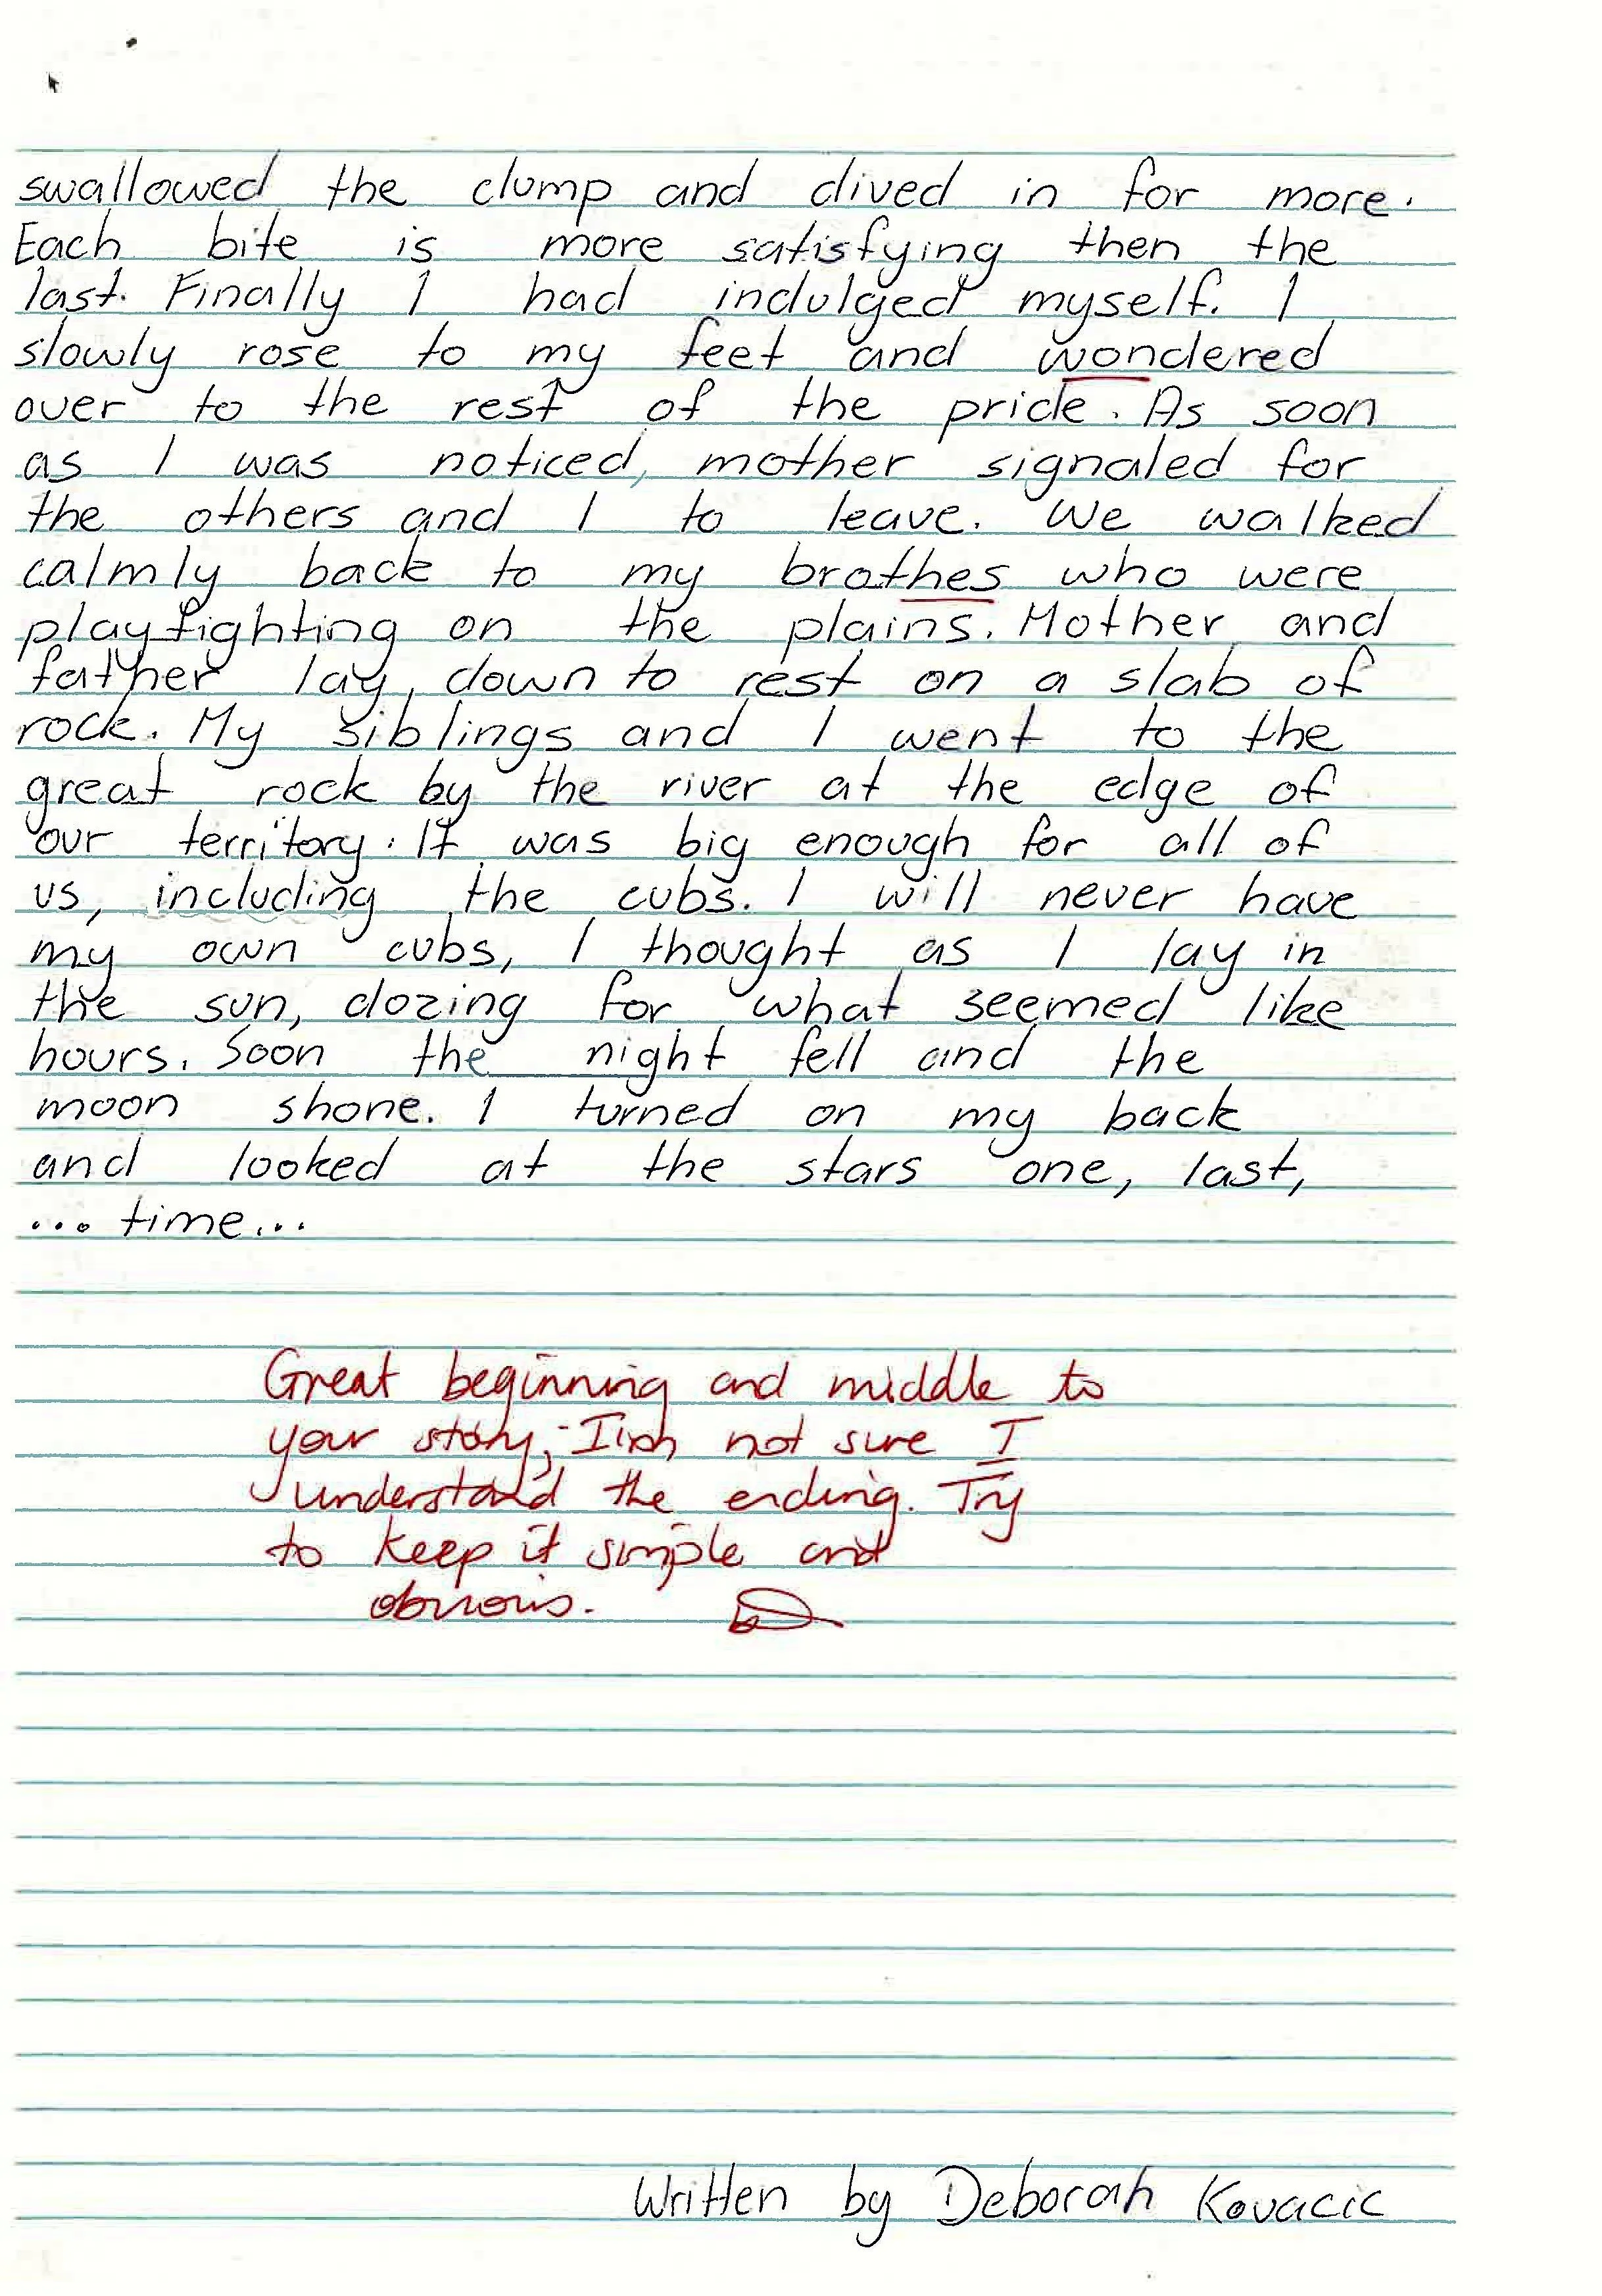 swallowed the clump and dived in for more.
Each bite is more satisfying then the
last. Finally I had indulged myself. I
slowly rose to my feet and wondered
over to the rest of the pride. As soon
as I was noticed, mother signaled for
the others and I to leave. We walked
calmly back to my brothes who were
playfighting on the plains. Mother and
father lay down to rest on a slab of
rock. My siblings and I went to the
great rock by the river at the edge of
our territory. It was big enough for all of
us, including the cubs. I will never have
my own cubs, I thought as I lay in
the sun, dozing for what seemed like
hours. Soon the night fell and the
moon shone. I turned on my back
and looked at the stars one, last,
... time...
Great beginning and middle to
your story; I'm not sure I
understand the ending. Try
to keep it simple and
obvious.
Written by Deborah Kovacic